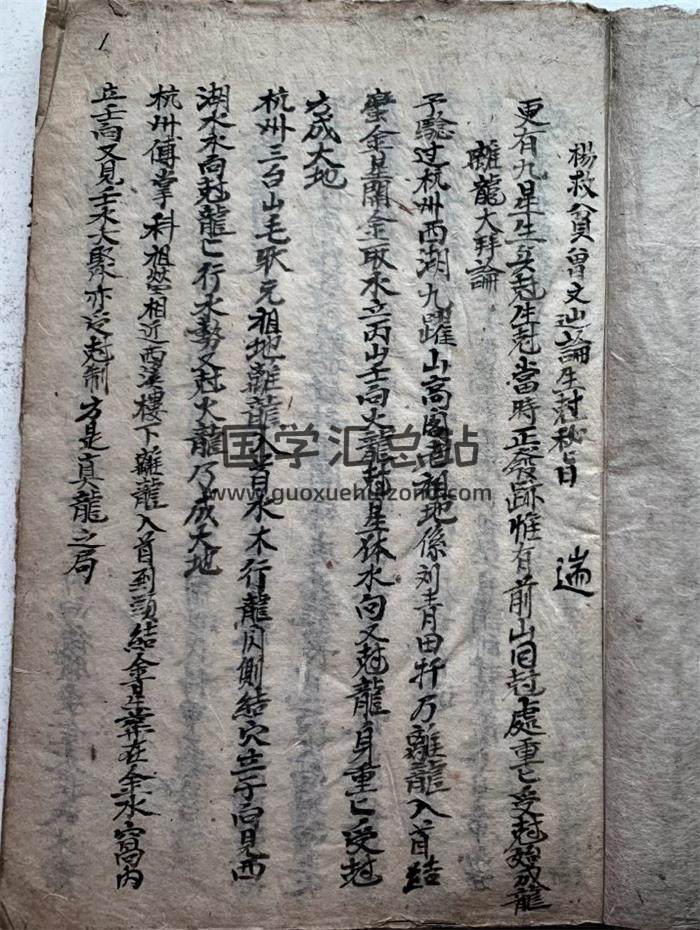 楊救貧曾文辿論生尅秘旨
遄
更有九星生與尅生尅當時正發跡惟有前山旧尅處重〻受尅始成龍
離龍大拜論
予驗过杭州西湖九躍山高閣老祖地係刘青田扦乃離龍入首結
金星開金取水立丙山壬向火龍尅星体水向又尅龍身重〻受尅
方成大地
杭州三台山毛狀元祖地離龍入首水木行龍貝側結穴立午向見西
湖水水向尅龍〻行水勢又尅火龍乃成大地
杭州傅掌科祖塋相近西溪樓下離龍入首到頭結金星葬在金水窩內
立壬向又見壬水大聚亦受尅制方是真龍之局
1
国学汇总站
www.guoxuehuizong.com